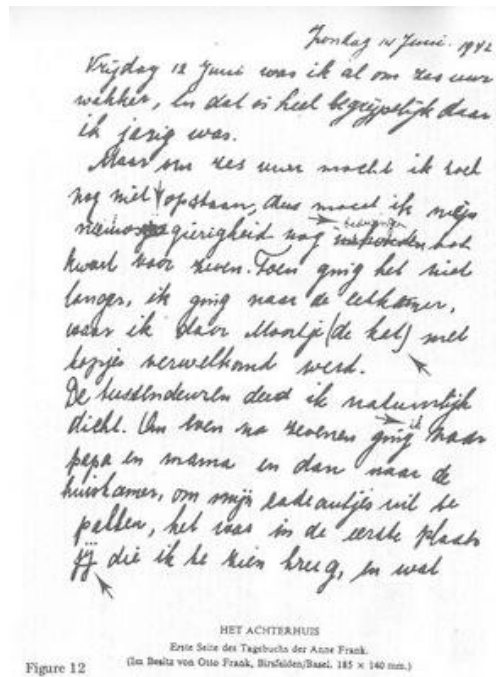 Zondag 14 Juni. 1942
Vrijdag 12 Juni was ik al om zes uur
wakker, en dat is heel begrijpelijk daar
ik jarig was.
Maar om zes uur mocht ik toch
nog niet opstaan, dus moest ik mijn
bedwingen
nieuwsgierigheid nog tot
kwart voor zeven. Toen ging het niet
langer, ik ging naar de eetkamer,
waar ik door Moortje (de kat) met
kopjes verwelkomd werd.
De tussendeuren deed ik natuurlijk
ik
dicht. Om even na zevenen ging naar
papa en mama en dan naar de
huiskamer, om mijn cadeautjes uit te
pakken, het was in de eerste plaats
jij die ik te zien kreeg, en wat
HET ACHTERHUIS
Erste Seite des Tagebuchs der Anne Frank.
(Im Besitz von Otto Frank, Birsfelden/Basel. 185 × 140 mm.)
Figure 12